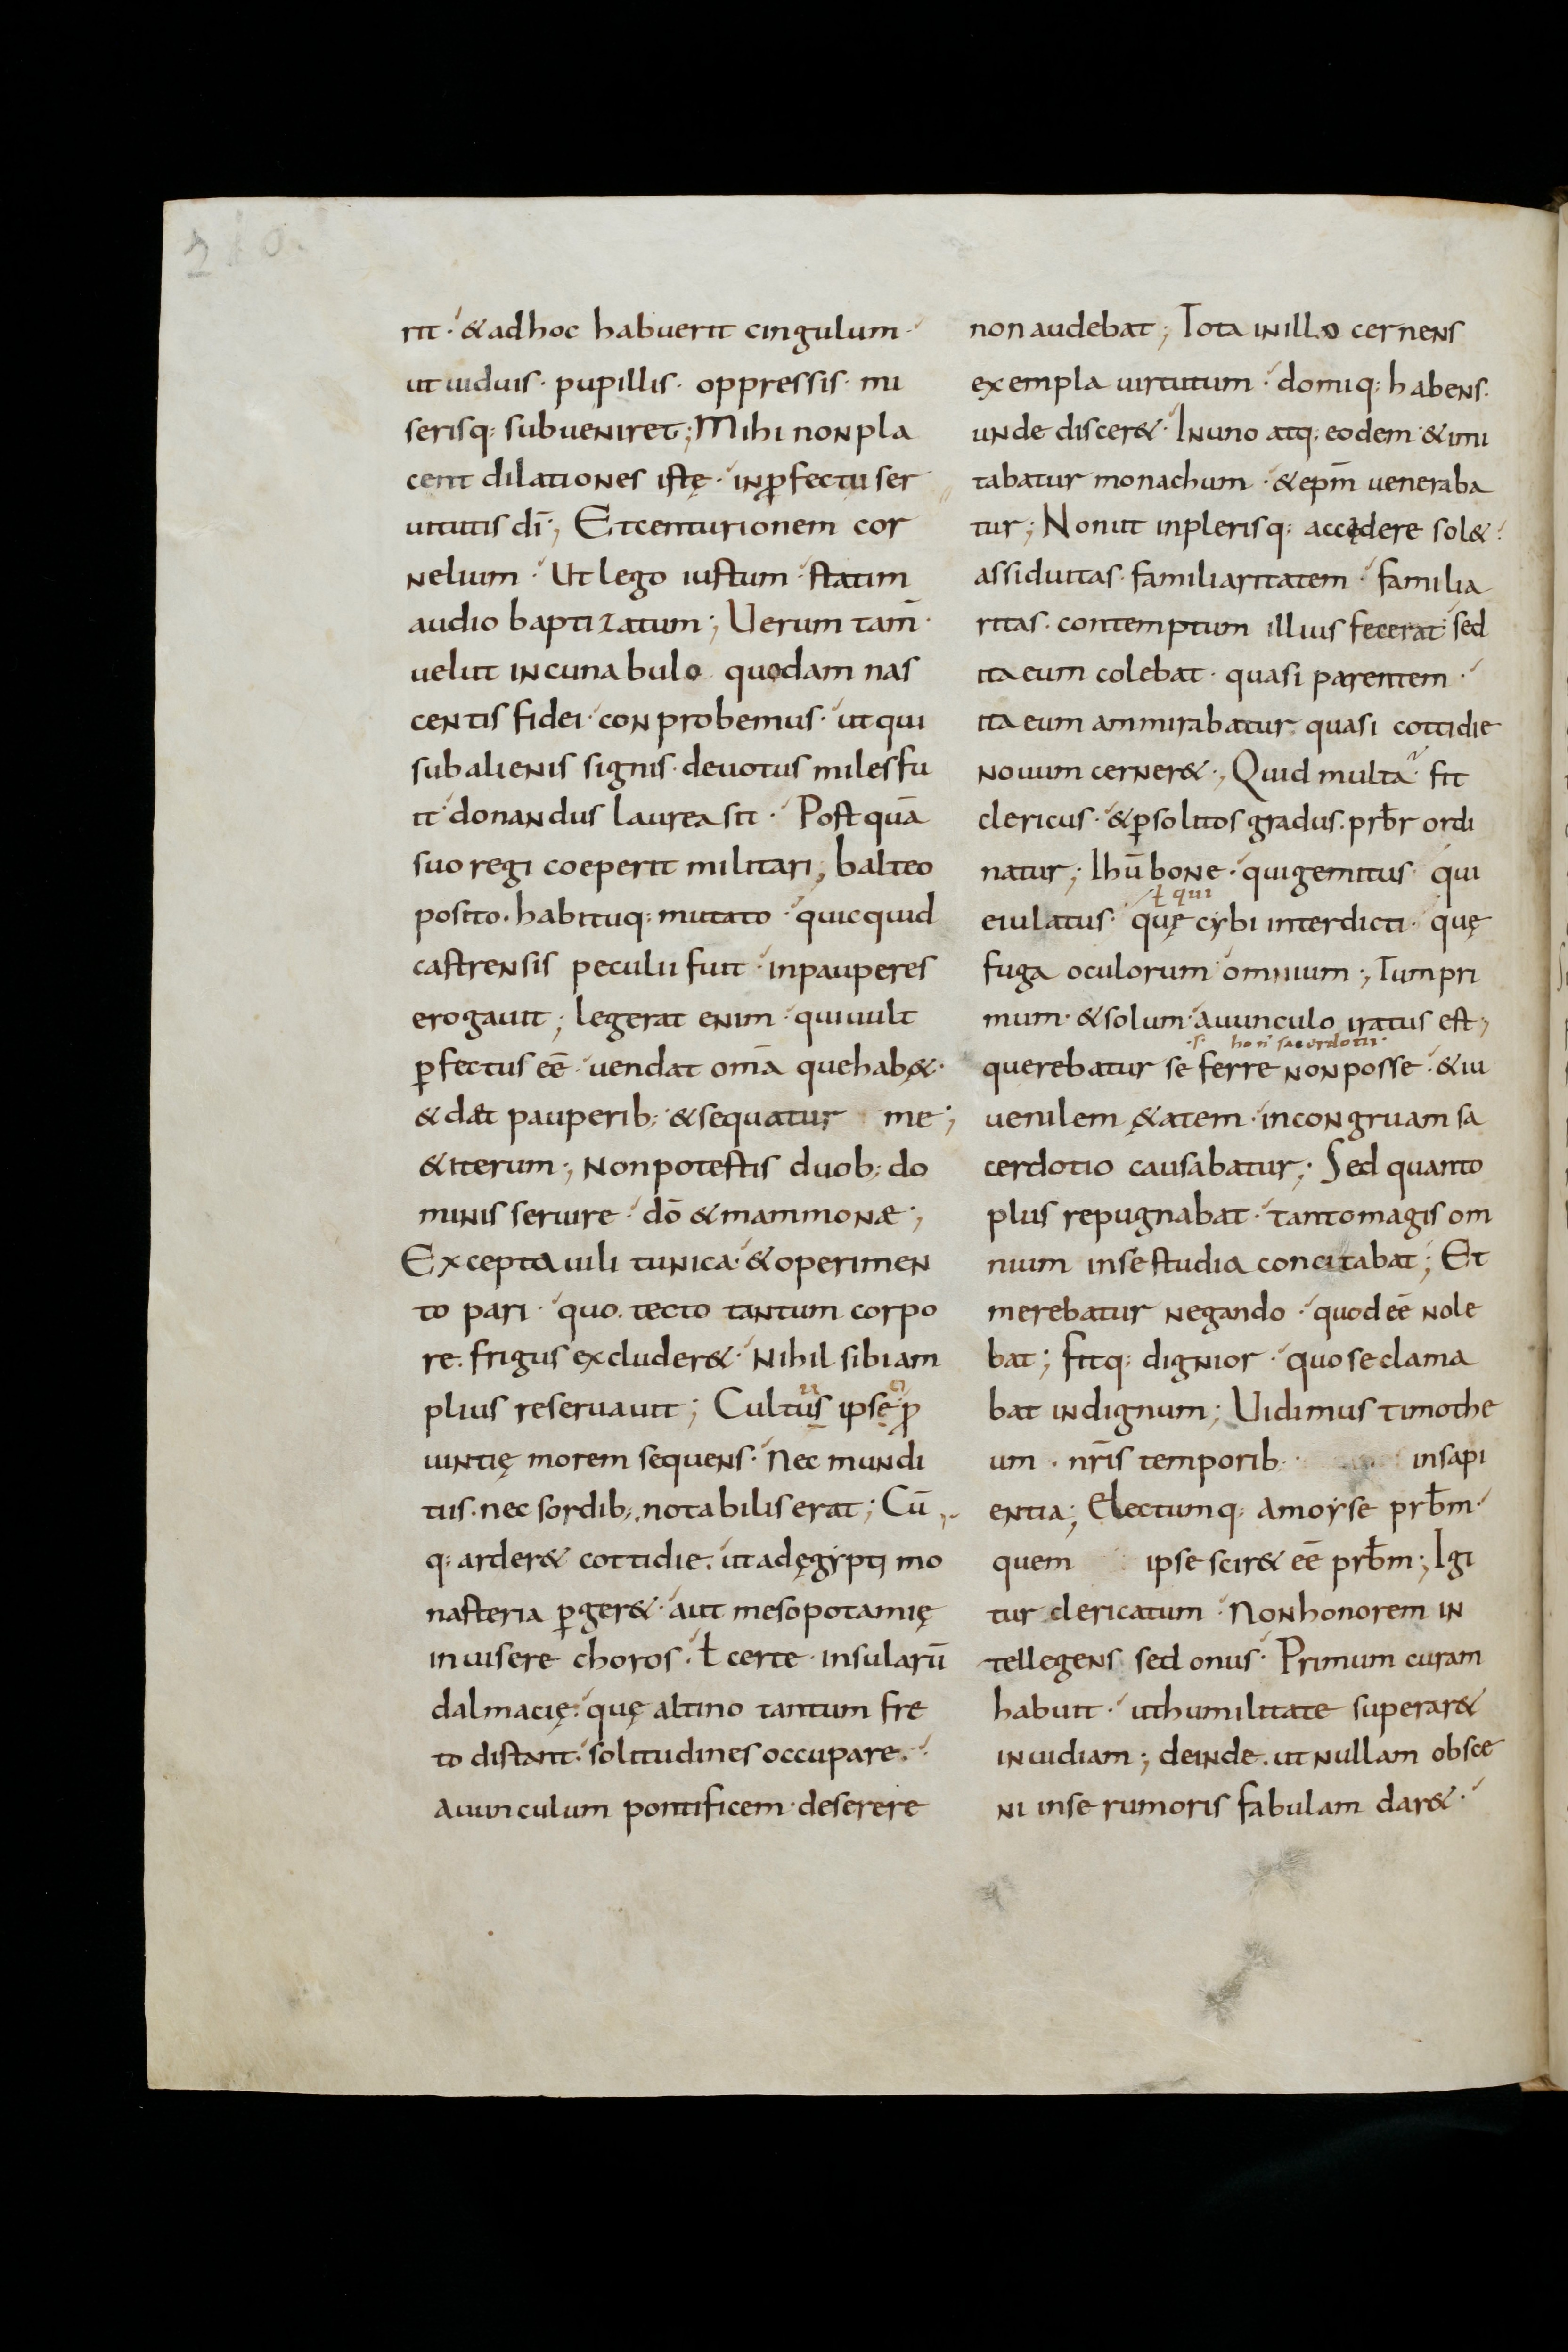 210.
rit · & ad hoc habuerit cingulum ·
ut uiduis · pupillis · oppressis · mi
serisq: subueniret; Mihi non pla
cent dilationes istę · in p̱fectu ser
uitutis dī; Et centurionem cor
nelium · Ut lego iustum · statim
audio baptizatum; Uerum tam̄ ·
uelut in cunabulo quodam nas
centis fidei · conprobemus · ut qui
sub alienis signis · deuotus miles fu
it · donandus laurea sit · Postquā
suo regi coeperit militari, balteo
posito · habituq: mutato · quicquid
castrensis peculii fuit · in pauperes
erogauit; legerat enim · qui uult
p̱fectus eē · uendat om̄a que hab& ·
& dat pauperib; & sequatur me;
& iterum; Non potestis duob; do
minis seruire · dō & mammonæ;
Excepta uili tunica · & operimen
to pari · quo tecto tantum corpo
re · frigus excluder& · Nihil sibi am
plius reseruauit; Cultus ipsę p̱
uintię morem sequens · Nec mundi
tiis · nec sordib; notabilis erat; Cū
q: arder& cottidie · ut ad ęgypti mo
nasteria p̱ger& · aut mesopotamię
inuisere choros · ƚ certe · insularū
dalmacię · quę altino tantum fre
to distant · solitudines occupare ·
Auunculum pontificem · deserere
non audebat; Tota in illo cernens
exempla uirtutum · domiq: habens ·
unde discer& · In uno atq; eodem & imi
tabatur monachum · & ep̄m ueneraba
tur; Non ut in plerisq: accędere sol& ·
assiduitas · familiaritatem · familia
ritas · contemptum illius fecerat · sed
ita eum colebat · quasi parentem ·
ita eum ammirabatur quasi cottidie
nouum cerner& ; Quid multa · fit
clericus · & p̱ solitos gradus · prb̄r ordi
natur; Ihū bone · qui gemitus · qui
ƚ qui
eiulatus · quę cybi interdicti · quę
fuga oculorum omnium; Tum pri
mum · & solum · auunculo iratus est;
·s· hon' sacerdotii ·
querebatur se ferre non posse · & iu
uenilem ę&atem · incongruam sa
cerdotio causabatur; Sed quanto
plus repugnabat · tanto magis om
nium in se studia concitabat; Et
merebatur negando · quod eē nole
bat; fitq: dignior · quo se clama
bat indignum; Uidimus timothe
um · nr̄is temporib; in sapi
entia; Electumq: a moyse prb̄m ·
quem ipse scir& eē prb̄m; Igi
tur clericatum · Non honorem in
tellegens sed onus · Primum curam
habuit · ut humilitate superar&
inuidiam; deinde · ut nullam obsce
ni in se rumoris fabulam dar& ·